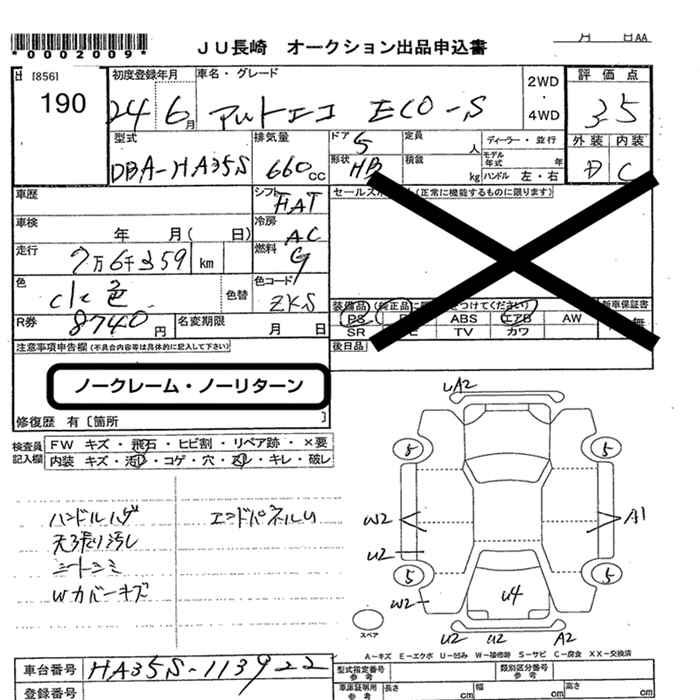 *0002009*
JU長崎 オークション出品申込書
月 日AA
[856]
190
初度登録年月 車名・グレード
24 6月 アルトエコ ECO-S
2WD
・
4WD
評価点
3.5
外装 内装
D C
型式 排気量
DBA-HA35S 660cc
ドア 5 定員 人
形状 HB 積載 kg
ディーラー・並行
モデル年式 年
ハンドル 左・右
車歴
シフト FAT
車検 年 月( 日)
冷房 AC
走行 7万6千359 km
燃料 G
色 色替
色コード ZKS
R券 8740円
名変期限 月 日
セールスポイント(正常に機能するものに限ります)
装備品
新車保証書
PS ABS エアB AW
SR TV カワ 無
後日品
注意事項申告欄(不具合内容等は具体的に記入して下さい)
ノークレーム・ノーリターン
修復歴 有〔箇所 〕
検査員記入欄
FW キズ・飛石・ヒビ割・リペア跡・×要
内装 キズ・汚レ・コゲ・穴・スレ・キレ・破レ
ハンドルハゲ エンドパネルU
天張り汚レ
シートシミ
Wカバーキズ
UA2
5 5
W2 A1
U2
5 5
W2 U4
スペア
U2 U2 A2
A-キズ E-エクボ U-凹み W-補修跡 S-サビ C-腐食 XX-交換済
車台番号 HA35S-113922
登録番号
型式指定番号 参考
類別区分番号 参考
車庫証明用 参考 長さ cm 幅 cm 高さ cm